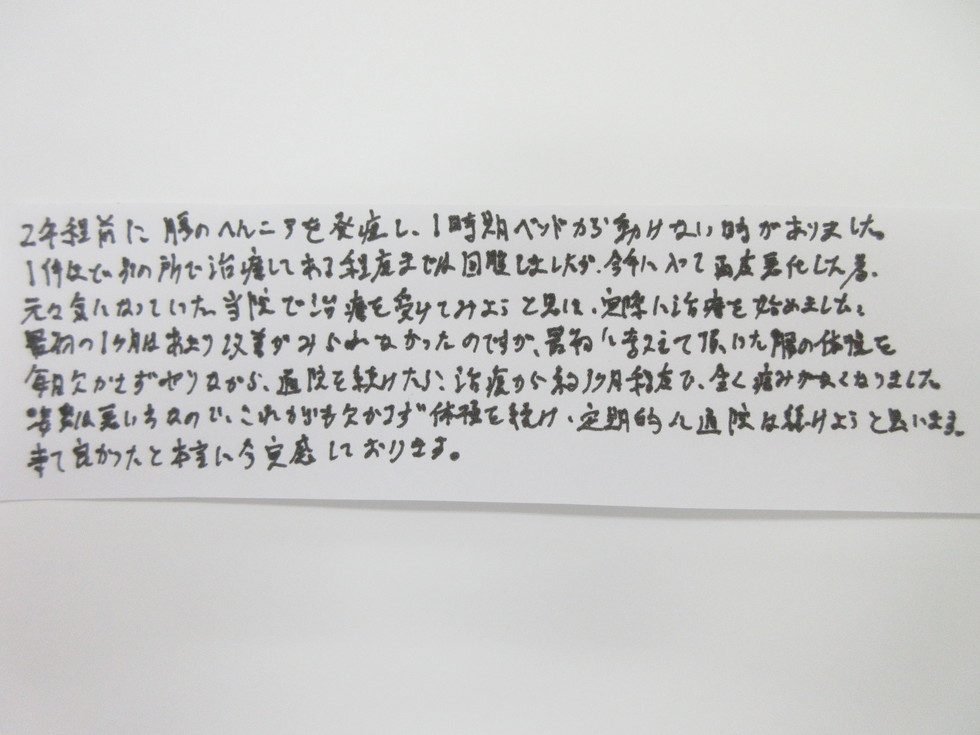 2年程前に腰のヘルニアを発症し、1時期ベッドから動けない時がありました。
1件ほど別の所で治療してある程度までは回復しましたが、今年に入って再度悪化した為、
元々気になっていた当院で治療を受けてみようと思い、実際に治療を始めました。
最初の1ヶ月はあまり改善がみられなかったのですが、最初に教えて頂いた腰の体操を
毎日欠かせずやりながら、通院を続けたら、治療から約3ヶ月程度で、全く痛みがなくなりました。
姿勢は悪いうなので、これからも欠かさず体操を続け、定期的に通院は続けようと思います。
来て良かったと本当に今実感しております。